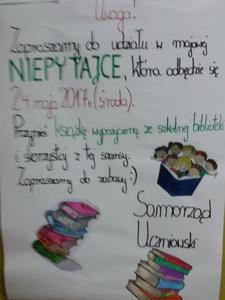 Uwaga!
Zapraszamy do udziału w majowej
NIEPYTAJCE, która odbędzie się
24 maja 2017r. (środa).
Przynieś książkę wypożyczoną ze szkolnej biblioteki
i skorzystaj z tej szansy.
Zapraszamy do zabawy :)
Samorząd
Uczniowski